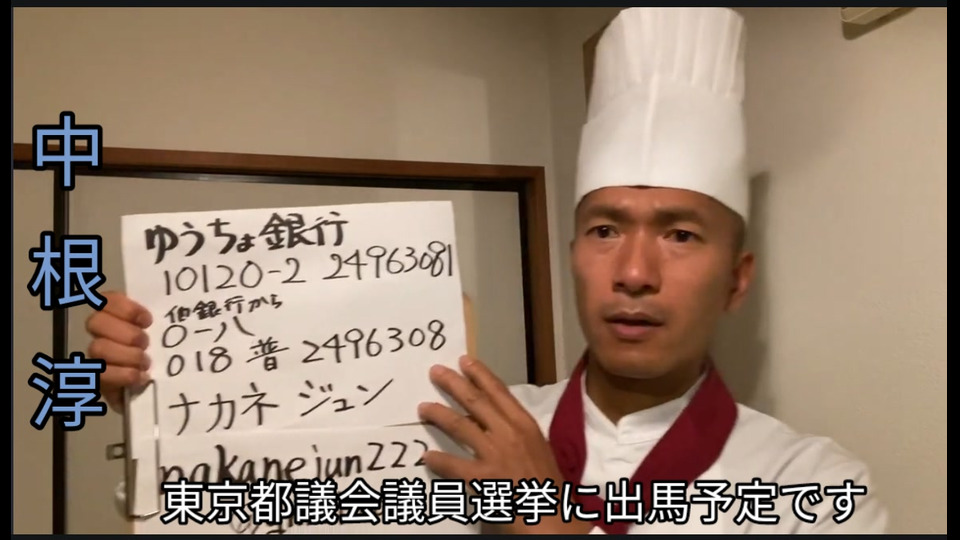 中根淳
ゆうちょ銀行
10120-2 24963081
他銀行から
〇一八
018 普 2496308
ナカネ ジュン
nakanejun222
東京都議会議員選挙に出馬予定です